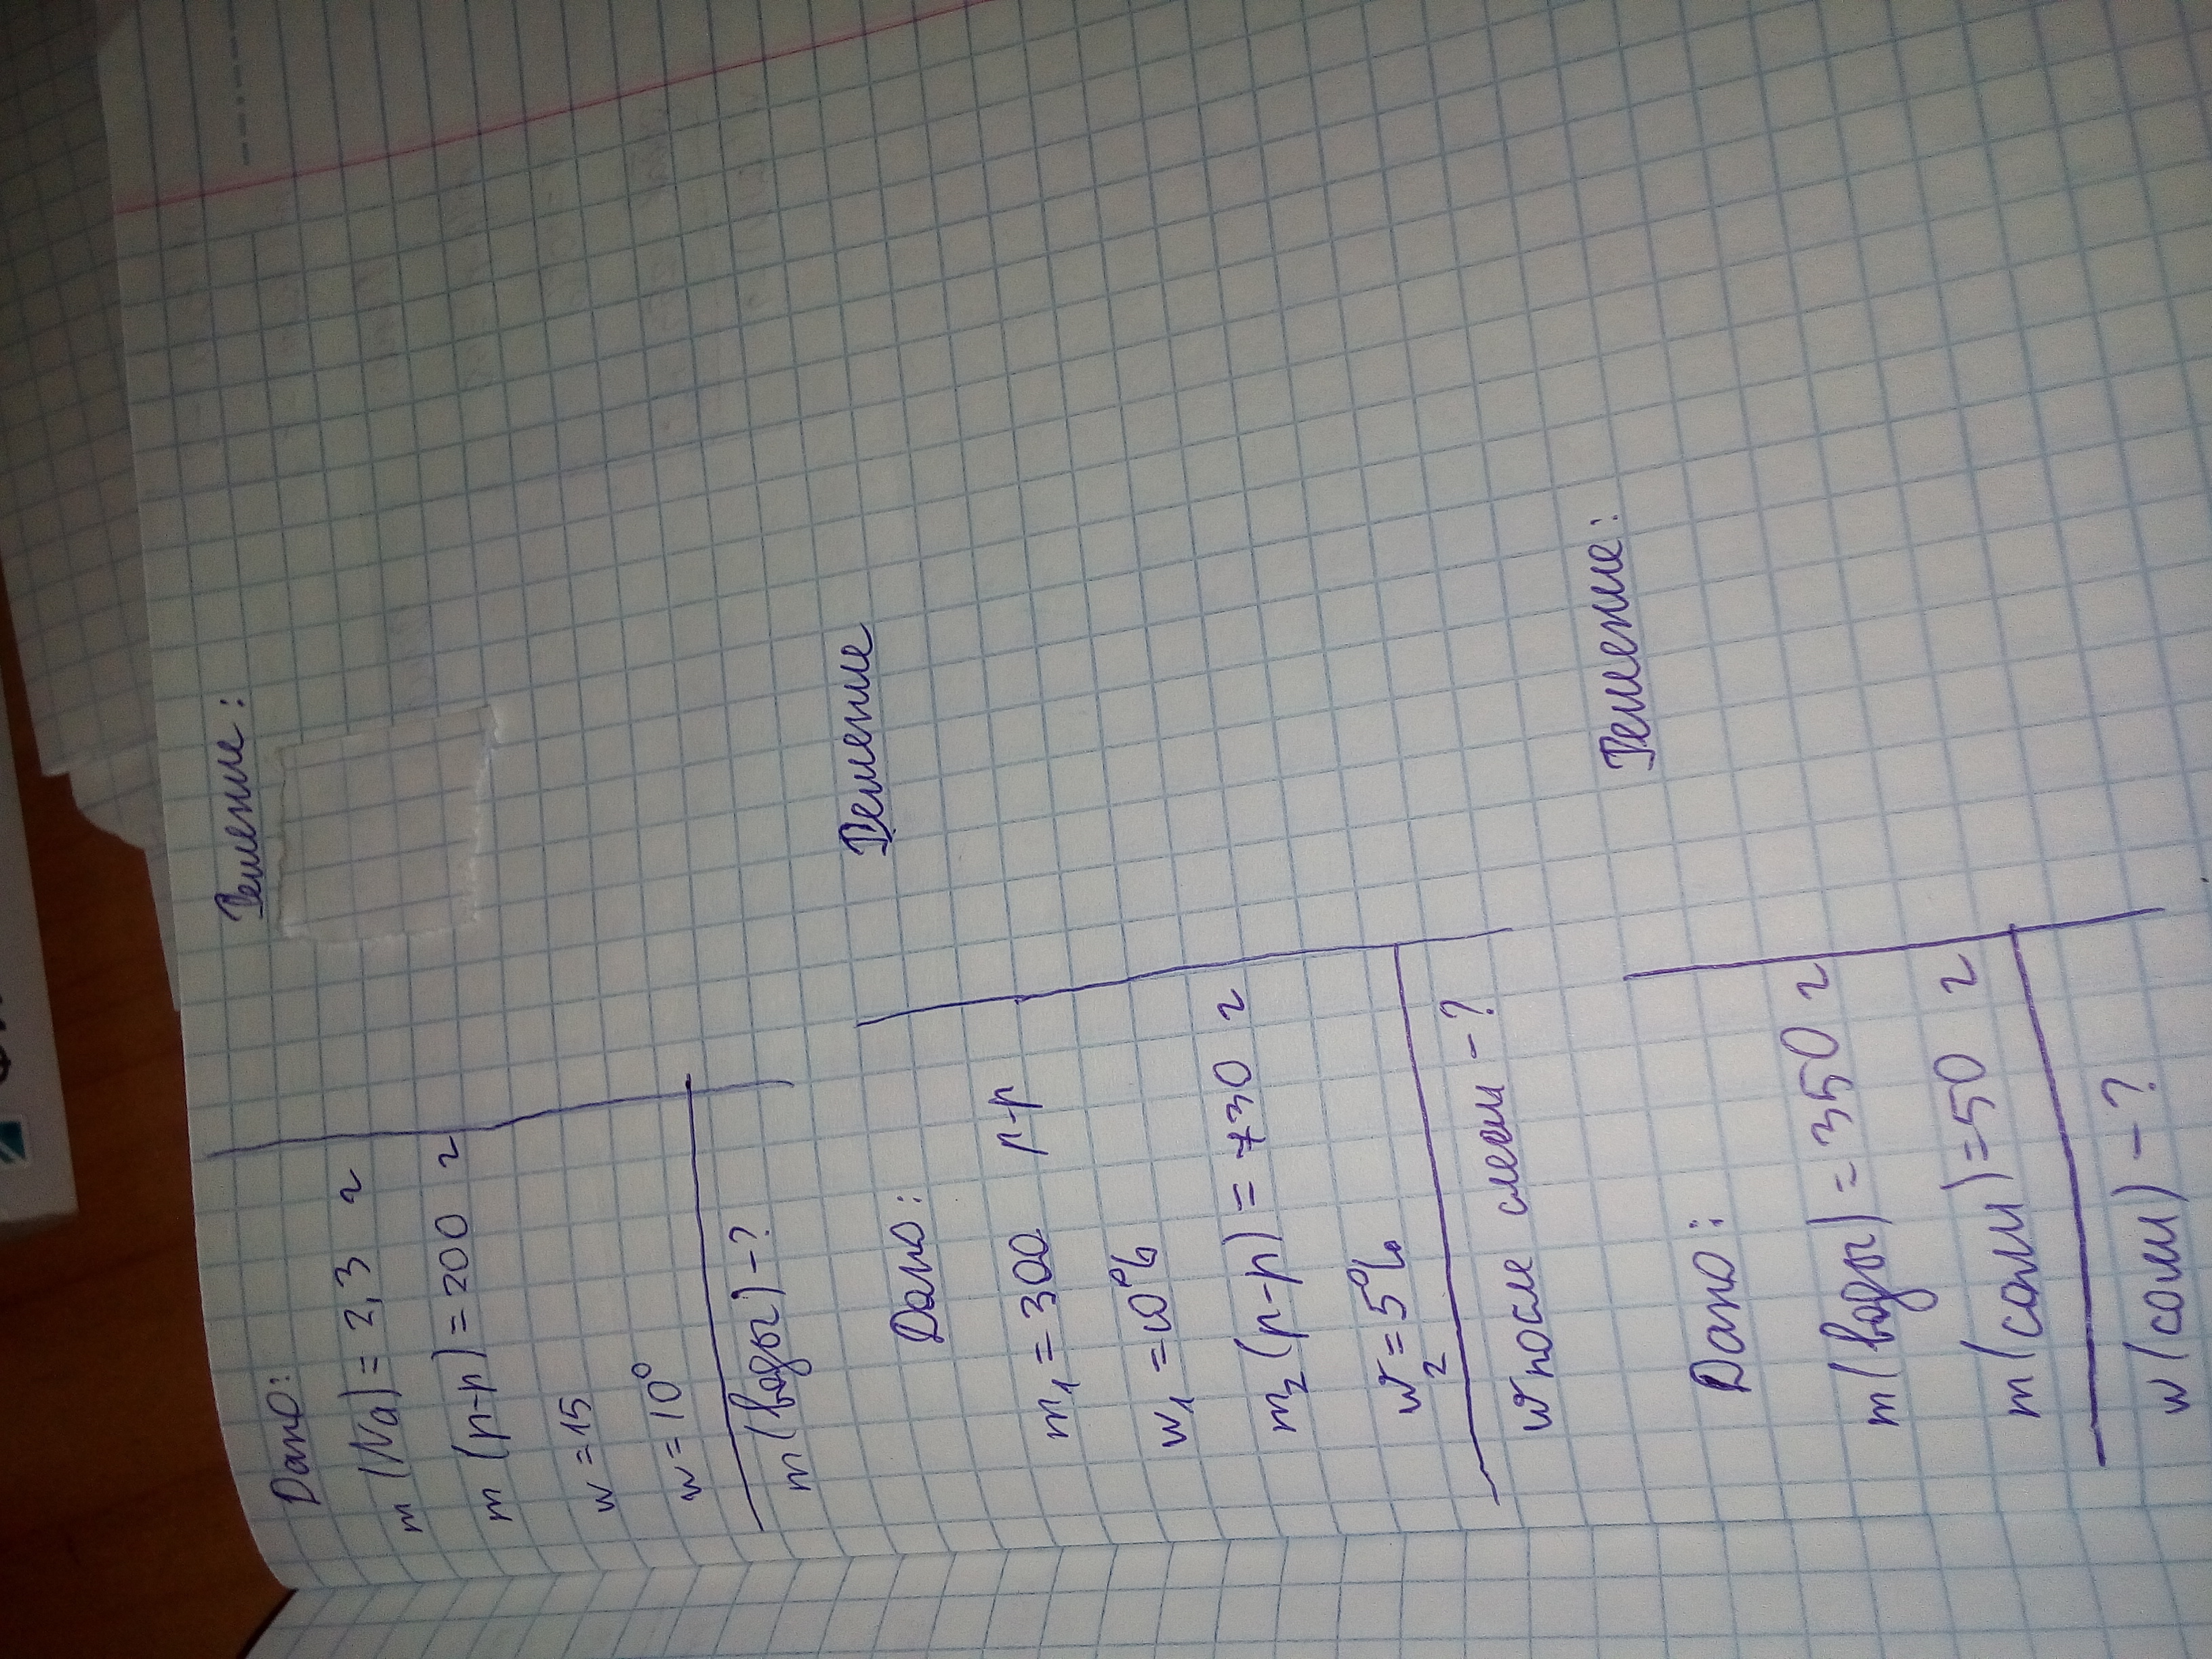 Дано:
Решение:
m (Na) = 2,3 г
m (р-р) = 200 г
w = 15
w = 10°
m (воды) - ?
Дано:
Решение
m1 = 300 р-р
w1 = 10%
m2 (р-р) = 730 г
w2 = 5%
w после слеям - ?
Дано:
Решение:
m (воды) = 350 г
m (соли) = 50 г
w (соли) - ?